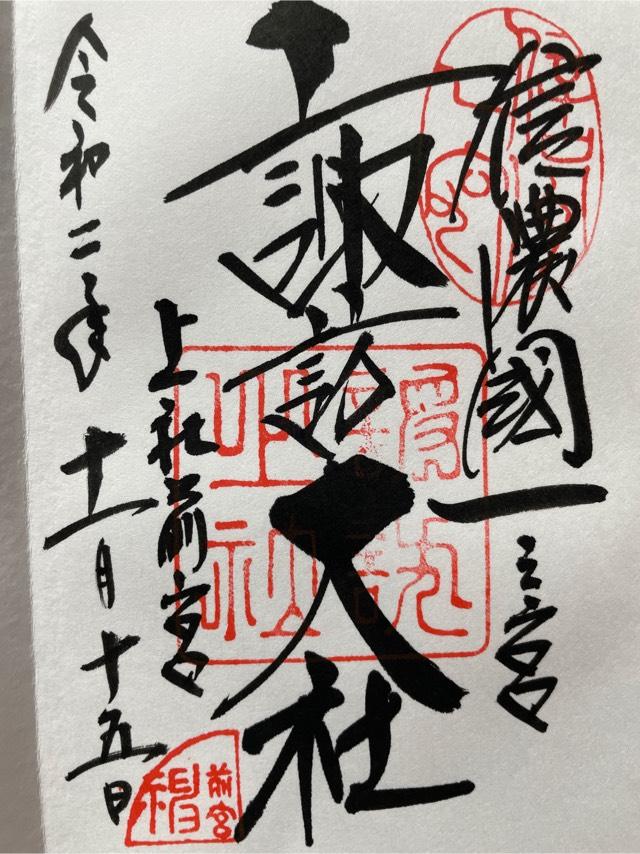 信濃國一之宮
諏訪大社
上社前宮
令和二年十一月十五日
前宮